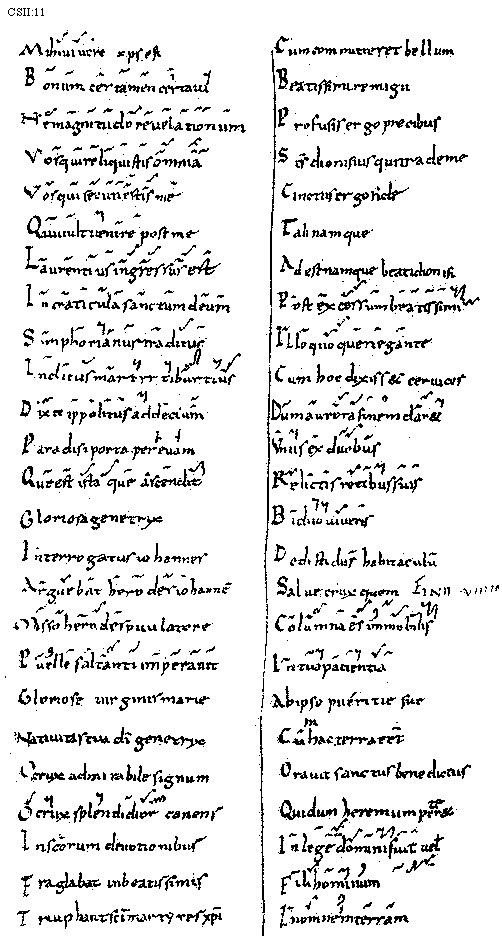 CSII:11
Mihi vivere xps est
Bonum certamen certavi
Ne magnitudo revelationum
Vos qui reliquistis omnia
Vos qui secuti estis me
Qui vult venire post me
Laurentius ingressus est
In craticula sanctum deum
Simphorianus traditus
Inclitus martyr tiburtius
Dixit ippolitus ad decium
Paradisi porta per evam
Que est ista que ascendit
Gloriosa genetryx
Interrogatus iohannes
Arguebat herodes iohanne
Misso herodes spiculatore
Puelle saltanti imperavit
Gloriose virginis marie
Nativitas tua di genetryx
Crux admirabile signum
O crux splendidior canens
In scorum devotionibus
Fraglabat in beatissimis
Triuphant sci martyres xpi
Cum committeret bellum
Beatissimi remigii
Profusis ergo precibus
Scs dionisius qui tradente
Cinctus ergo fide
Tali namque
Adest namque beati dionisii
Post excessum beatissimi
Illo quoque negante
Cum hoc dixisset cervicis
Dum aurora finem daret
Unus ex duobus
Relictis retibus suis
Biduo vivens
Dedisti dns habitaculu
Salve crux quem
Columna es immobilis
In tua patientia
Ab ipso pueritie sue
Cu hac terra
Oravit sanctus benedictus
Quidam heremum
In lege domini fuit vel
Filii hominum
In omnem terram